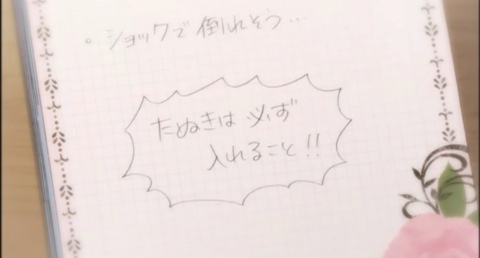 。ショックで倒れそう…
たぬきは必ず
入れること!!